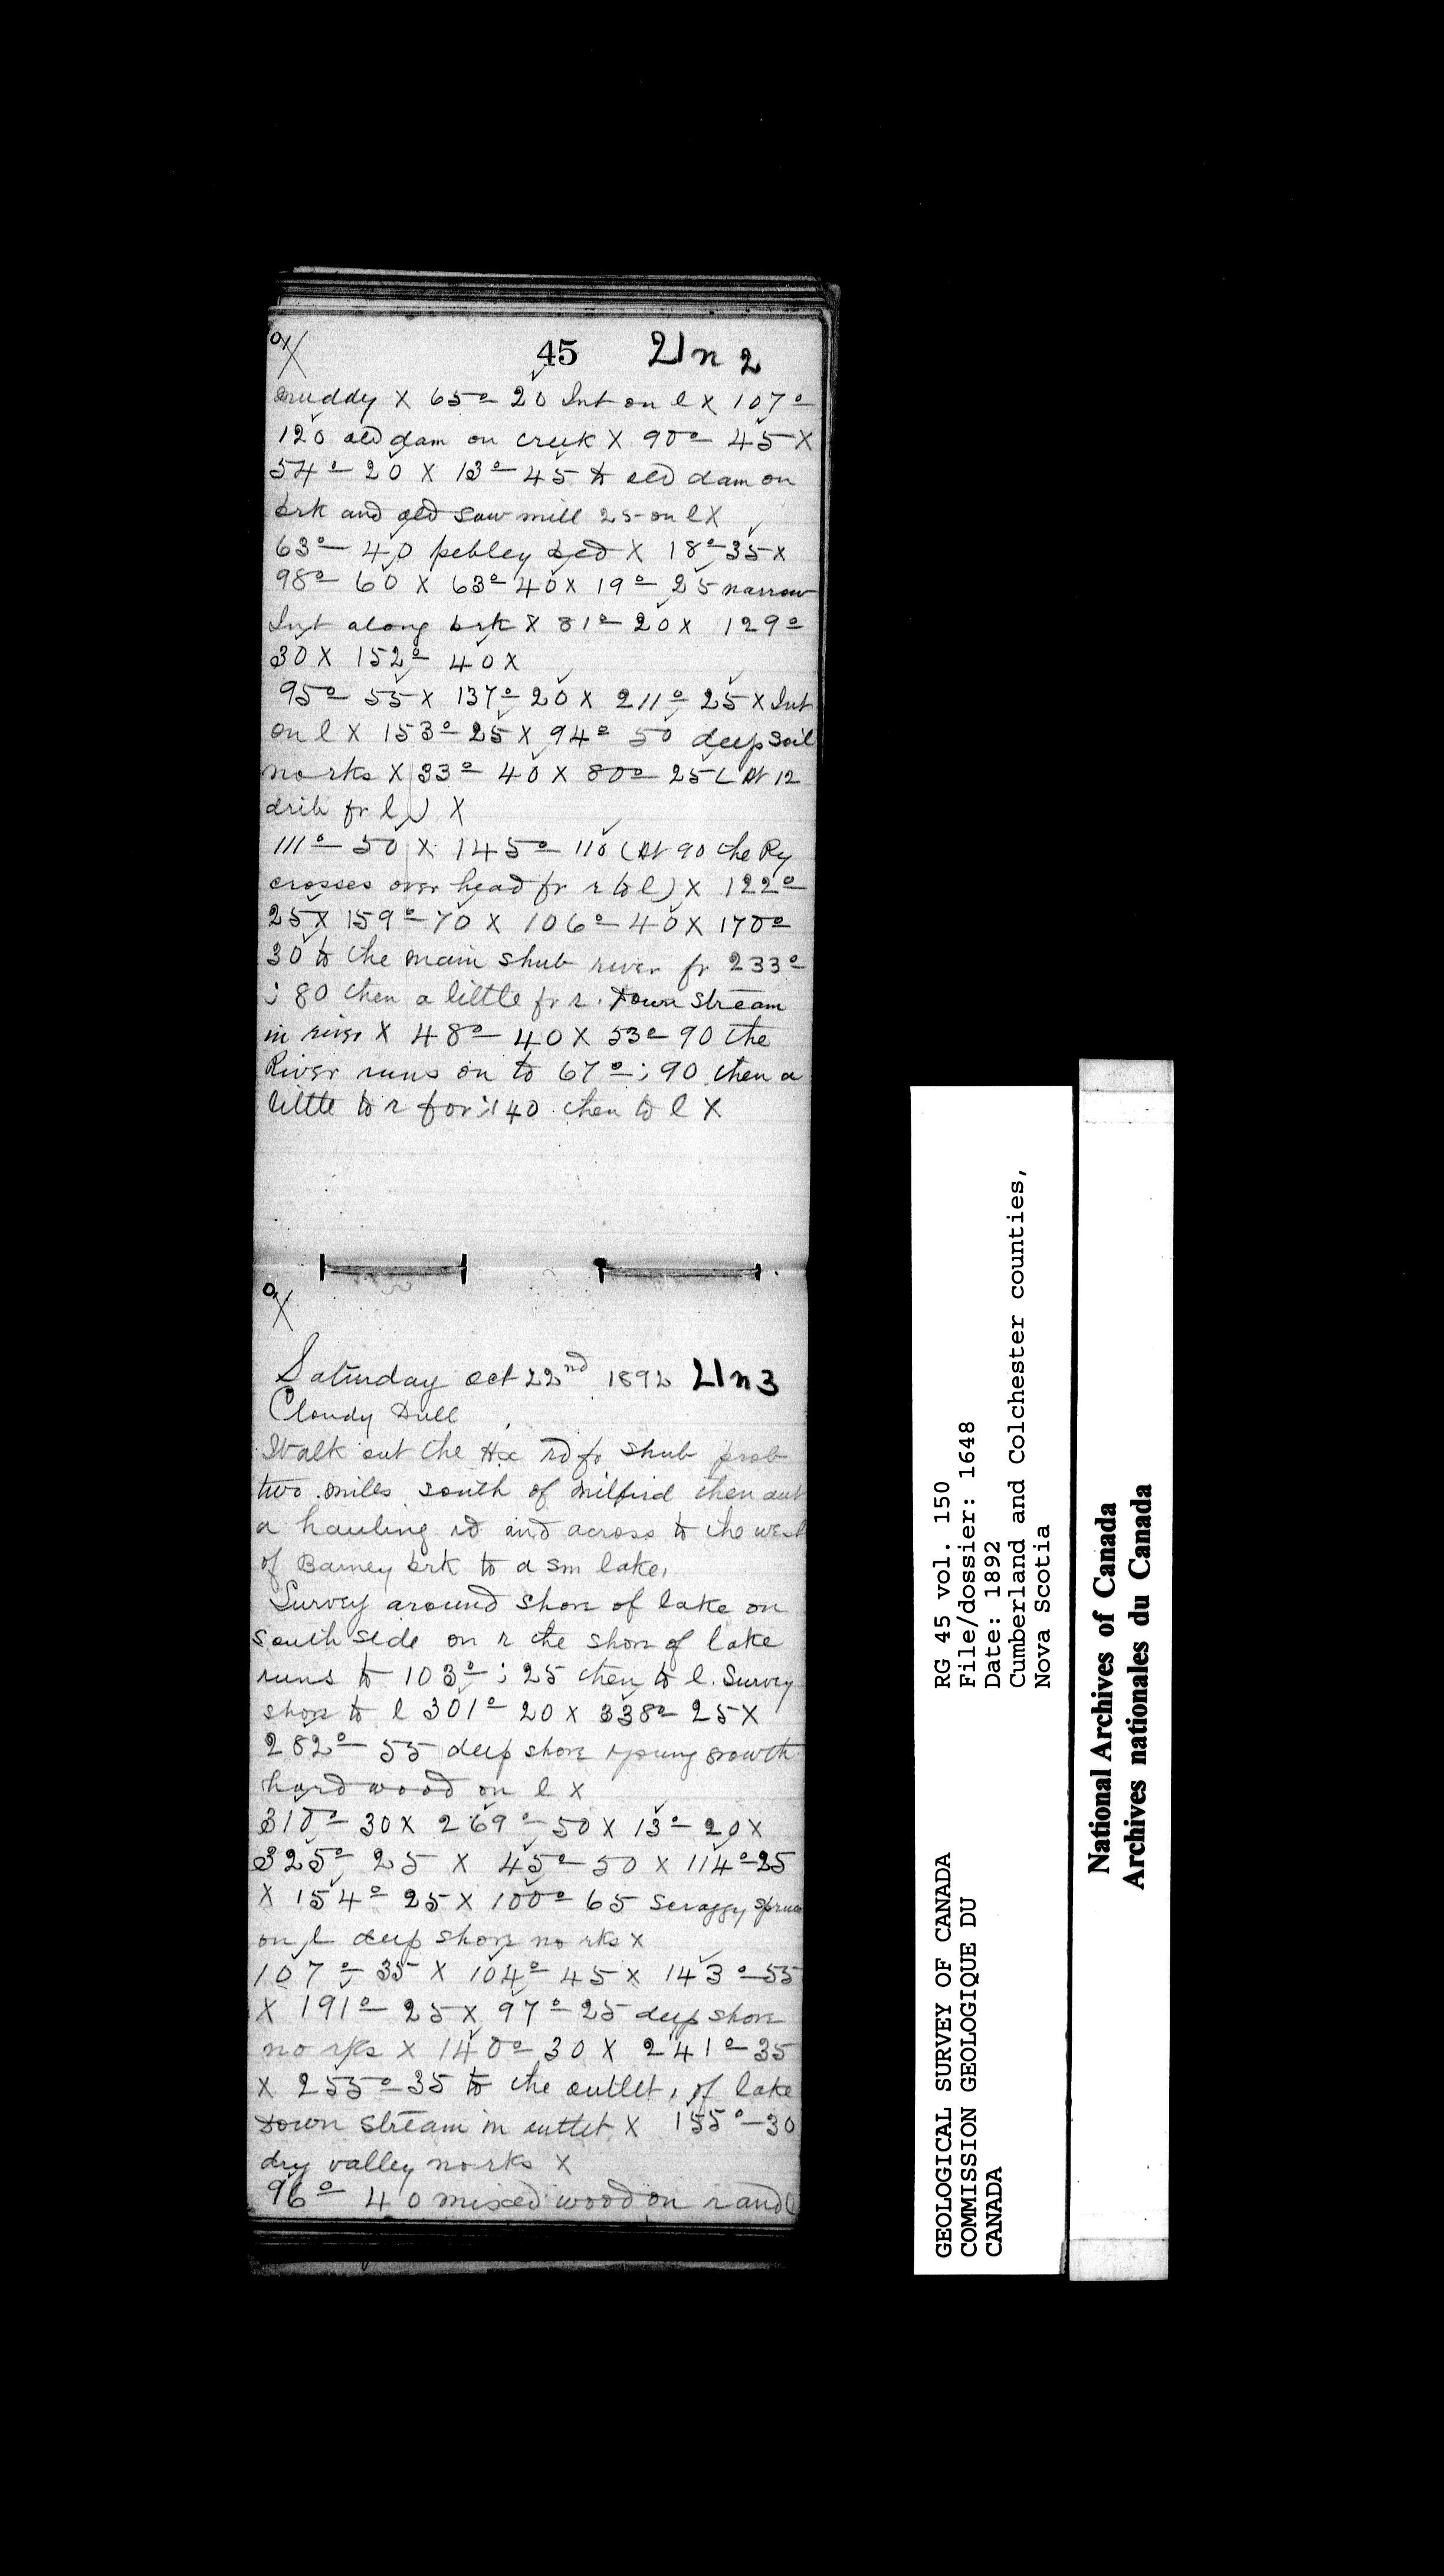 45 21 n 2
muddy X 65° 20 Int on l X 107°
120 old dam on creek X 90° 45 X
54° 20 X 13° 45 to old dam on
brk and old saw mill 25 on l X
63° 40 pebley bed X 18° 35 X
98° 60 X 63° 40 X 19° 25 narrow
Int along brk X 81° 20 X 129°
30 X 152° 40 X
95° 55 X 137° 20 X 211° 25 X Int
on l X 153° 25 X 94° 50 deep soil
no rks X 33° 40 X 80° 25 (At 12
drib fr l) X
111° 50 X 145° 110 (At 90 the Ry
crosses over head fr r to l) X 122°
25 X 159° 70 X 106° 40 X 170°
30 to the main shub river fr 233°
; 80 then a little fr r. Down stream
in river X 48° 40 X 53° 90 the
River runs on to 67° ; 90 then a
little to r for ; 140 then to l X
Saturday Oct 22nd 1892 21 n 3
Cloudy Dull
Walk out the Hx rd fr shub prob
two miles south of milfird then out
a hauling rd and across to the west
of Barney brk to a sm lake,
Survey around shore of lake on
south side on r the shore of lake
runs to 103° ; 25 then to l. Survey
shore to l 301° 20 X 338° 25 X
282° 55 deep shore young growth
hard wood on l X
310° 30 X 269° 50 X 13° 20 X
325° 25 X 45° 50 X 114° 25
X 154° 25 X 100° 65 Scraggy spruce
on l deep shore no rks X
107° 35 X 104° 45 X 143° 55
X 191° 25 X 97° 25 deep shore
no rks X 140° 30 X 241° 35
X 255° 35 to the outlet, of lake
Down stream in outlet X 155° 30
dry valley no rks X
96° 40 mixed wood on r and l
GEOLOGICAL SURVEY OF CANADA
COMMISSION GEOLOGIQUE DU
CANADA
RG 45 vol. 150
File/dossier: 1648
Date: 1892
Cumberland and Colchester counties,
Nova Scotia
National Archives of Canada
Archives nationales du Canada